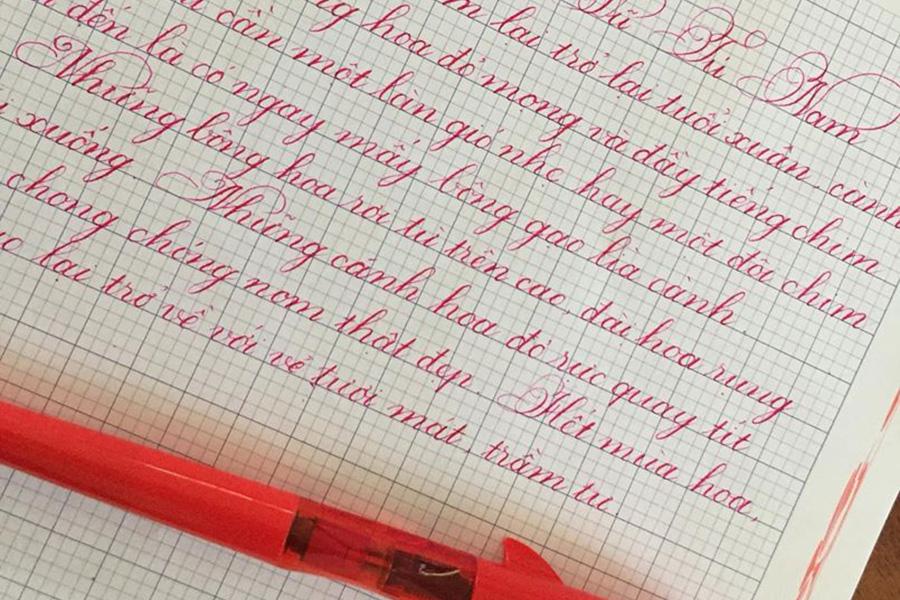 Vũ Tú Nam
lại trở lại tuổi xuân, cành
hoa đỏ mọng và đầy tiếng chim
cần một làn gió nhẹ hay một đôi chim
đến là có ngay mấy bông gạo lìa cành.
Những bông hoa rơi từ trên cao, đài hoa rung
xuống. Những cánh hoa đỏ rực quay tít
chong chóng nom thật đẹp. Hết mùa hoa,
lại trở về với vẻ tươi mát, trầm tư.